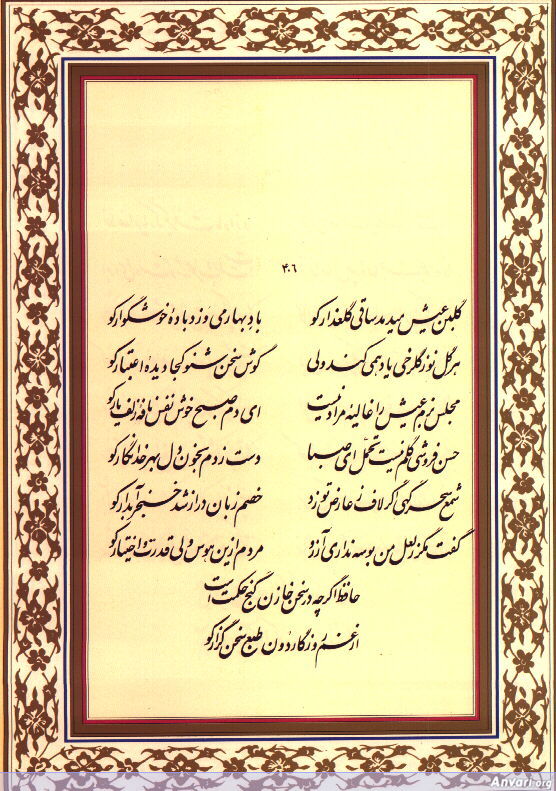 ۴۰۶
گلبن عیش میدمد ساقی گلعذار کو باد بهاری وزد باده خوشگوار کو
هر گل نو ز گلرخی یاد همی کند ولی گوش سخن شنو کجا دیده اعتبار کو
مجلس بزم عیش را غالیه مراد نیست ای دم صبح خوش نفس نافه زلف یار کو
حسن فروشی گلم نیست تحمل ای صبا دست زدم بخون دل بهر خدا نگار کو
شمع سحرگهی اگر لاف ز عارض تو زد خصم زبان دراز شد خنجر آبدار کو
گفت مگر ز لعل من بوسه نداری آرزو مردم ازین هوس ولی قدرت و اختیار کو
حافظ اگرچه در سخن خازن گنج حکمت است
از غم روزگار دون طبع سخن گزار کو
Anvari.org